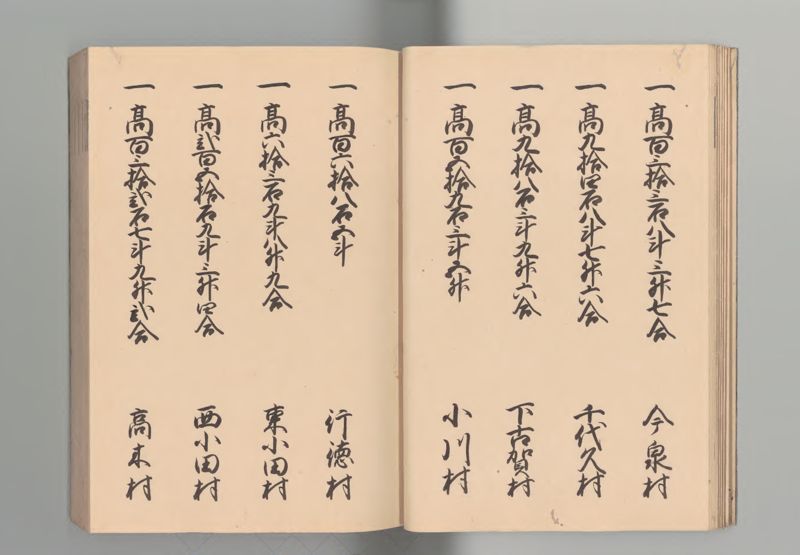 一 高百三拾三石八斗三升七合 今泉村
一 高九拾四石八斗七升六合 千代久村
一 高九拾八石三斗九升六合 下古賀村
一 高百五拾九石三斗五升 小川村
一 高百六拾八石五斗 行徳村
一 高六拾三石九斗八升九合 東小田村
一 高弐百五拾石九斗三升四合 西小田村
一 高百三拾弐石七斗九升弐合 高木村